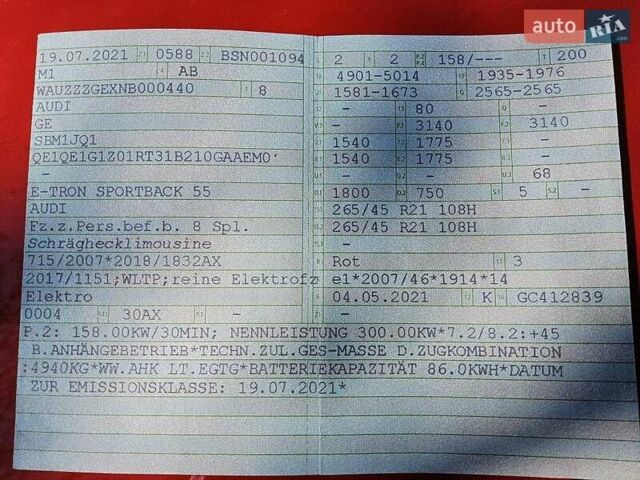 auto RIA .com
19.07.2021 0588 BSN001094
M1 AB
WAUZZZGEXNB000440 8
AUDI
GE
SBM1JQ1
QE1QE1G1Z01RT31B210GAAEM0
-
E-TRON SPORTBACK 55
AUDI
Fz.z.Pers.bef.b. 8 Spl.
Schräghecklimousine
715/2007*2018/1832AX
2017/1151;WLTP;reine Elektrofz
Elektro
0004 30AX -
2 2 158/--- 200
4901-5014 1935-1976
1581-1673 2565-2565
- 80 -
- 3140 3140
1540 1775 -
1540 1775 -
- - 68
1800 750 5 -
265/45 R21 108H
265/45 R21 108H
-
Rot 3
e1*2007/46*1914*14
04.05.2021 K GC412839
-
P.2: 158.00KW/30MIN; NENNLEISTUNG 300.00KW*7.2/8.2:+45
B.ANHÄNGEBETRIEB*TECHN.ZUL.GES-MASSE D.ZUGKOMBINATION
:4940KG*WW.AHK LT.EGTG*BATTERIEKAPAZITÄT 86.0KWH*DATUM
ZUR EMISSIONSKLASSE: 19.07.2021*